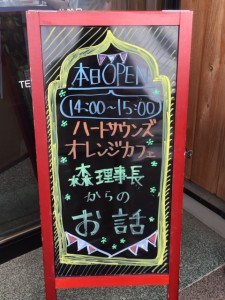 本日OPEN
14:00～15:00
ハートサウンズ
オレンジカフェ
森理事長
からの
お話